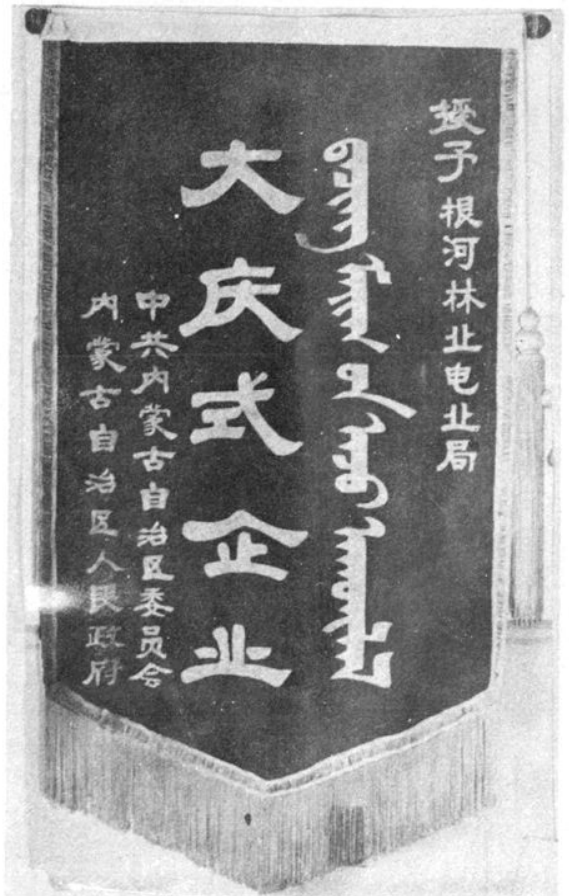 授予根河林业电业局
大庆式企业
中共内蒙古自治区委员会
内蒙古自治区人民政府